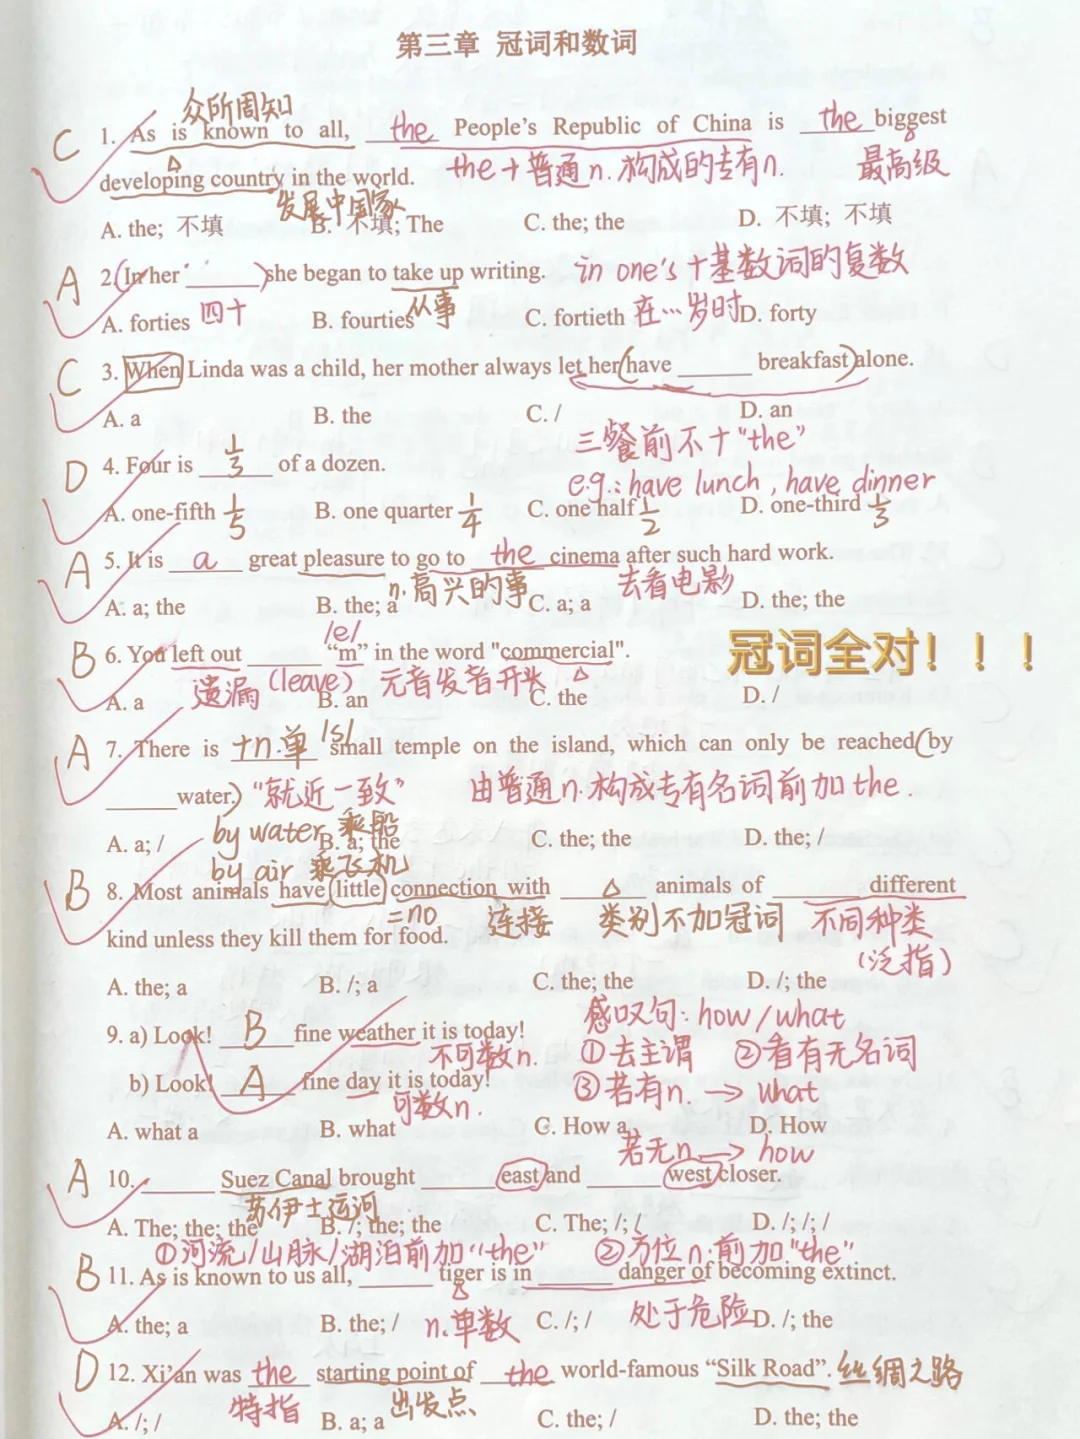 第三章 冠词和数词
众所周知
C 1. As is known to all, the People's Republic of China is the biggest
developing country in the world. the+普通n.构成的专有n. 最高级
发展中国家
A. the; 不填 B. 不填; The C. the; the D. 不填; 不填
A 2. (In her ______)she began to take up writing. in one's+基数词的复数
A. forties 四十 B. fourties 从事 C. fortieth 在…岁时 D. forty
C 3. When Linda was a child, her mother always let her(have ______ breakfast)alone.
A. a B. the C. / D. an
三餐前不+"the"
D 4. Four is 1/3 of a dozen.
e.g.: have lunch, have dinner
A. one-fifth 1/5 B. one quarter 1/4 C. one half 1/2 D. one-third 1/3
A 5. It is a great pleasure to go to the cinema after such hard work.
n.高兴的事 去看电影
A. a; the B. the; a C. a; a D. the; the
/e/
B 6. You left out ______ “m” in the word "commercial". 冠词全对！！！
遗漏(leave) 元音发音开头
A. a B. an C. the D. /
A 7. There is +n.单 /s/ small temple on the island, which can only be reached(by
______water.) “就近一致” 由普通n.构成专有名词前加the.
by water 乘船
A. a; / B. a; the C. the; the D. the; /
by air 乘飞机
B 8. Most animals have little connection with ______ animals of ______ different
=no 连接 类别不加冠词 不同种类
kind unless they kill them for food. (泛指)
A. the; a B. /; a C. the; the D. /; the
感叹句: how/what
9. a) Look! B fine weather it is today!
不可数n. ①去主谓 ②看有无名词
b) Look! A fine day it is today! ③若有n. → what
可数n.
A. what a B. what C. How a D. How
若无n → how
A 10. ______ Suez Canal brought ______ east and ______ west closer.
苏伊士运河
A. The; the; the B. /; the; the C. The; /; / D. /; /; /
①河流/山脉/湖泊前加“the” ②方位n.前加"the"
B 11. As is known to us all, ______ tiger is in ______ danger of becoming extinct.
A. the; a B. the; / n.单数 C. /; / 处于危险 D. /; the
D 12. Xi'an was the starting point of the world-famous “Silk Road”. 丝绸之路
特指 出发点
A. /; / B. a; a C. the; / D. the; the